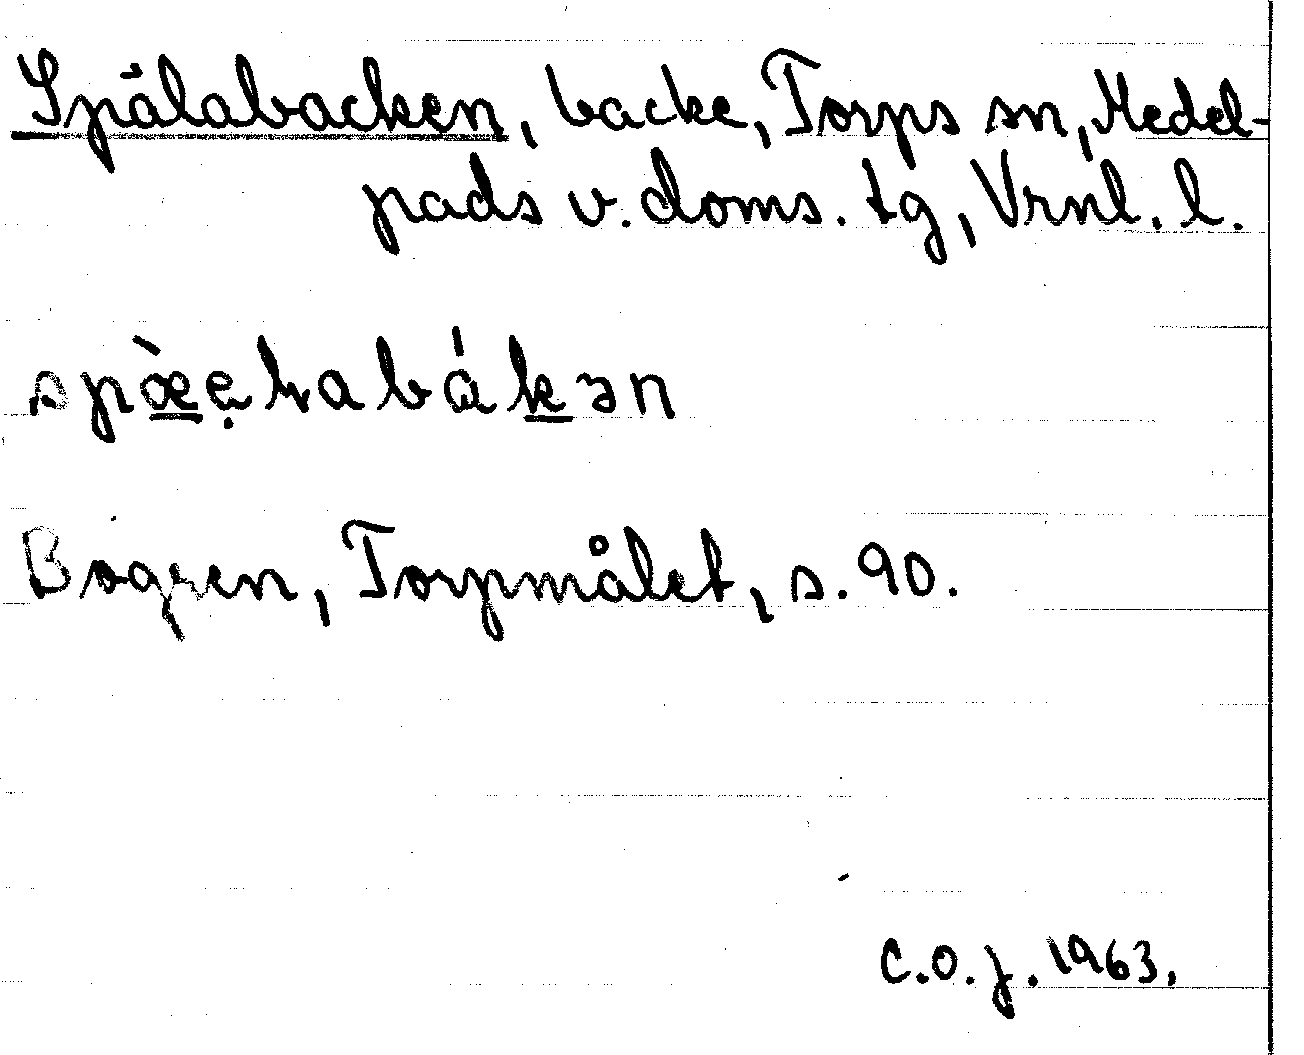 Spälabacken, backe, Torps sn, Medel-
pads v. doms. tg, Vrnl. l.
Bogren, Torpmålet, s. 90.
C.O.J. 1963.